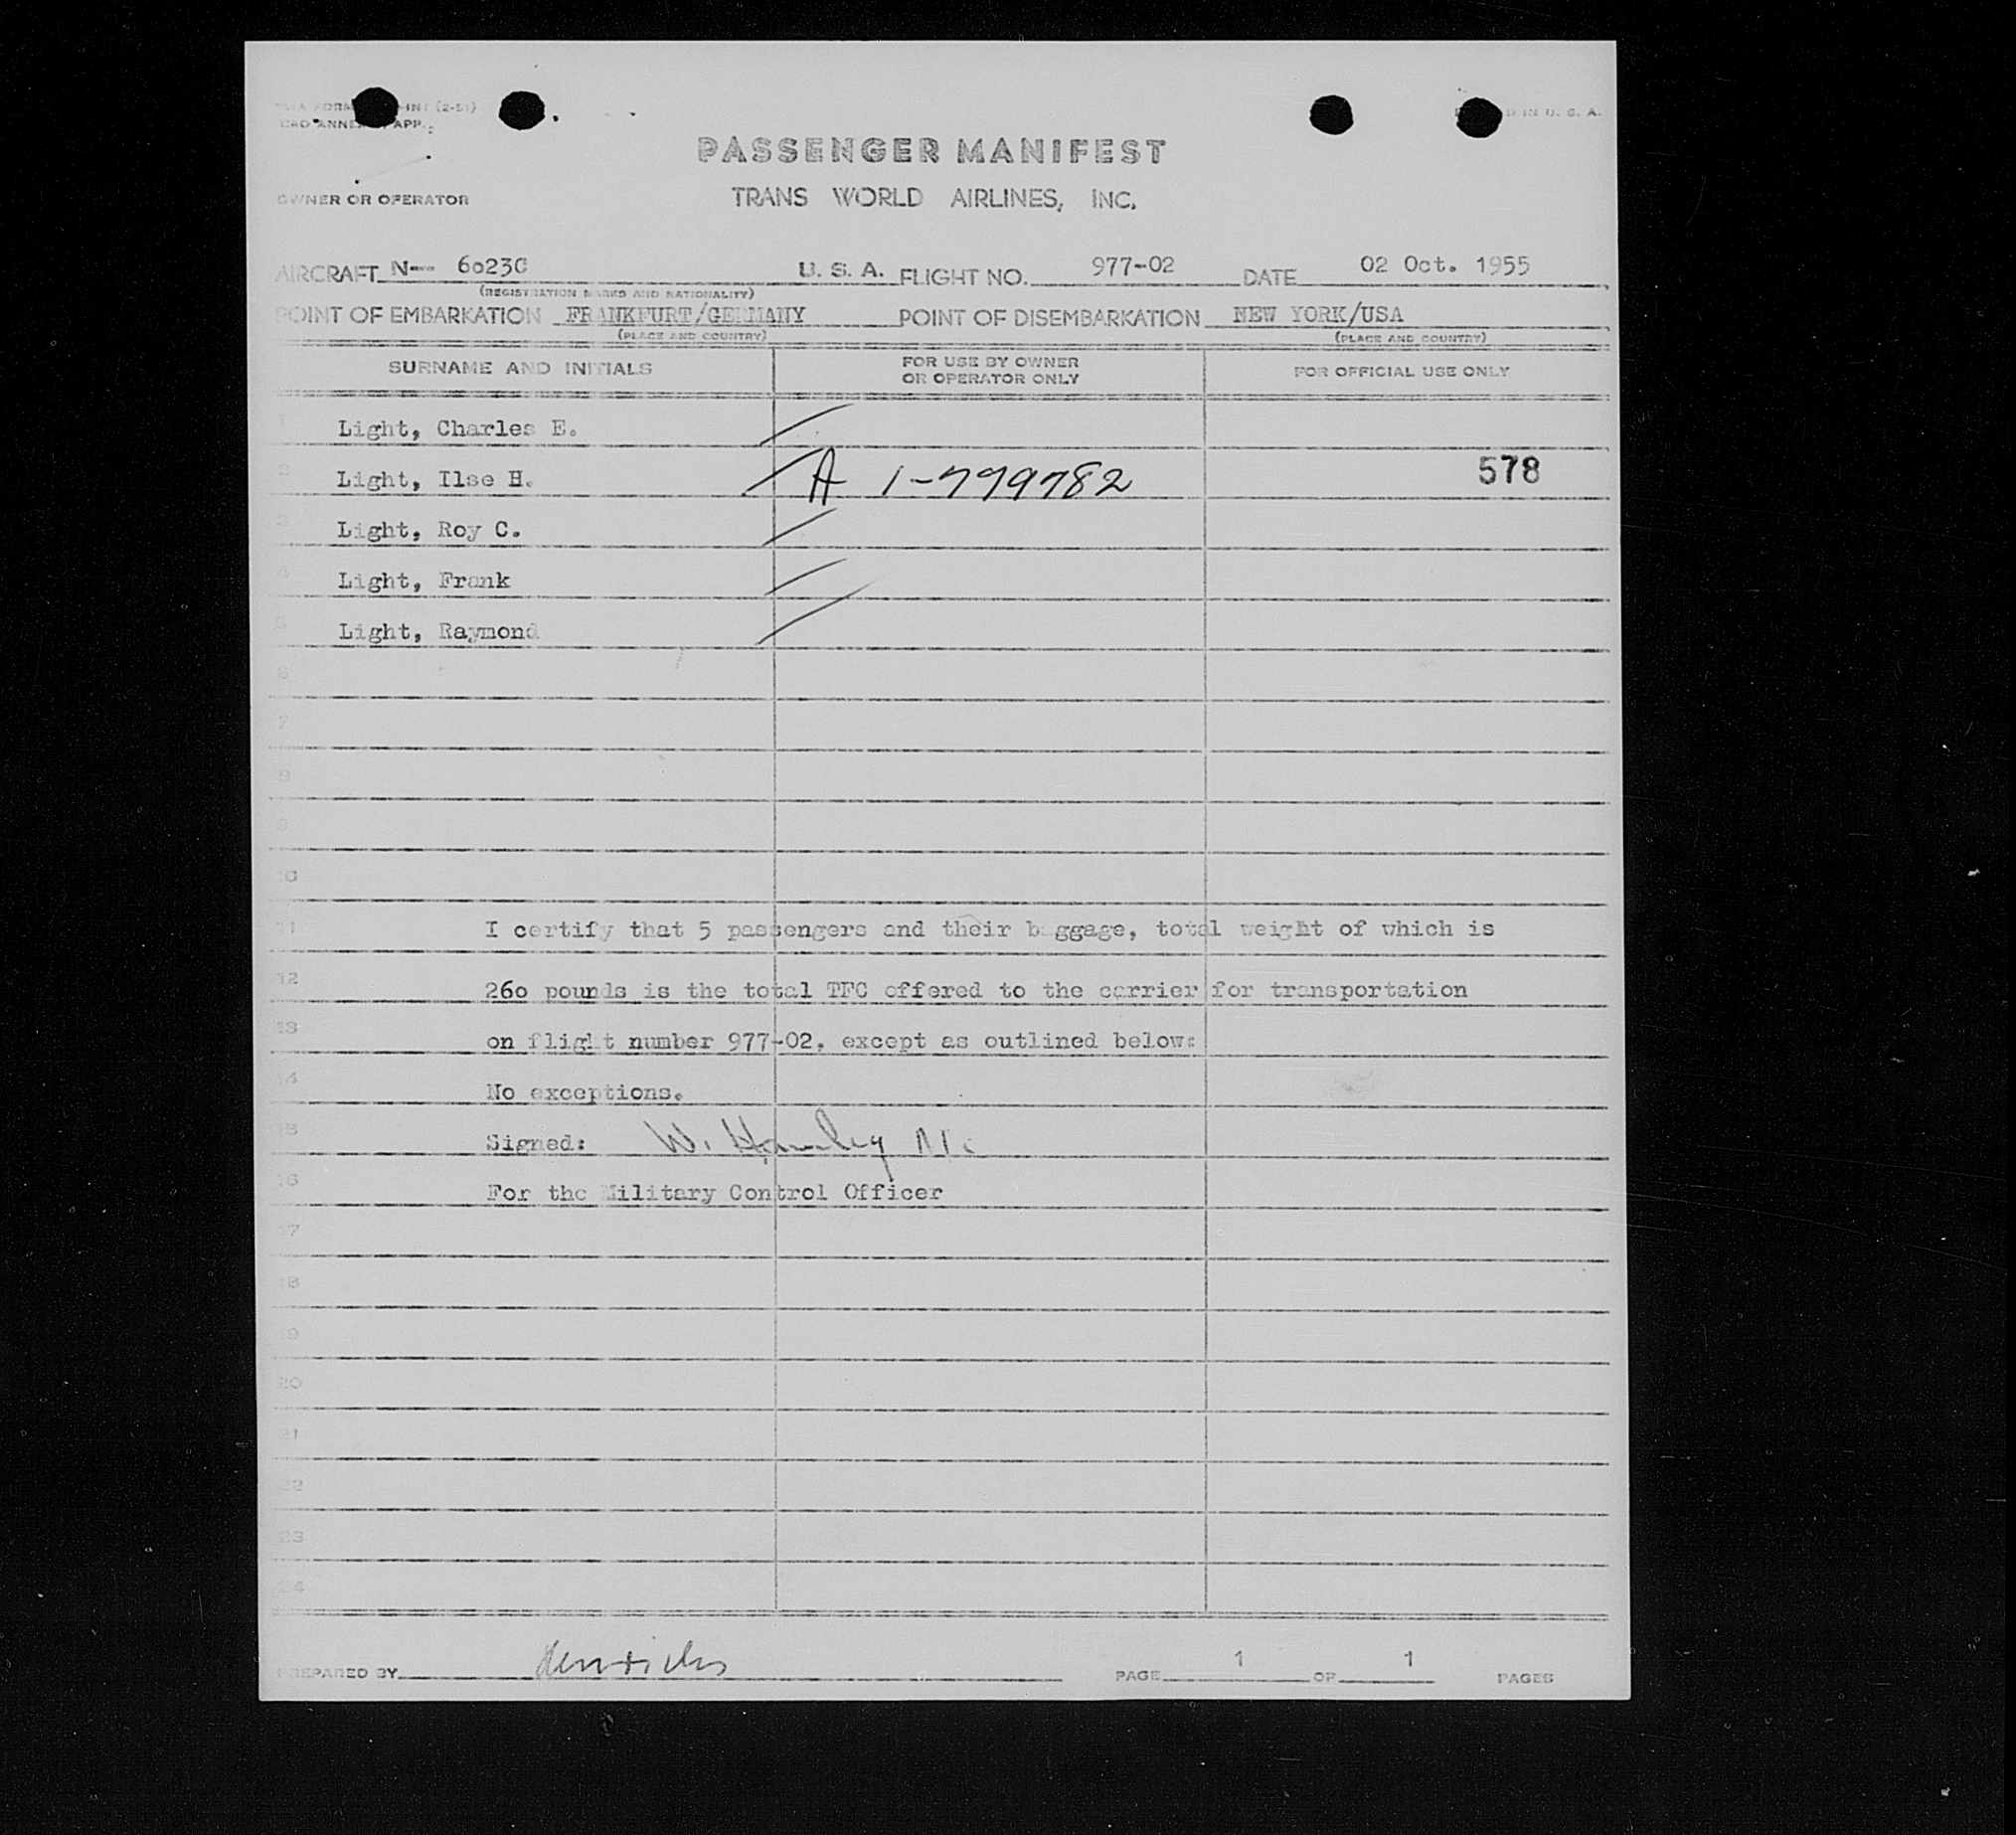 FORM -INT (2-51)
CAO ANNEX APP.
IN U. S. A.
PASSENGER MANIFEST
OWNER OR OPERATOR
TRANS WORLD AIRLINES, INC.
AIRCRAFT N-- 6023C U. S. A. FLIGHT NO. 977-02 DATE 02 Oct. 1955
(REGISTRATION MARKS AND NATIONALITY)
POINT OF EMBARKATION FRANKFURT/GERMANY POINT OF DISEMBARKATION NEW YORK/USA
(PLACE AND COUNTRY) (PLACE AND COUNTRY)
SURNAME AND INITIALS FOR USE BY OWNER OR OPERATOR ONLY FOR OFFICIAL USE ONLY
1 Light, Charles E.
2 Light, Ilse H. A 1-799782 578
3 Light, Roy C.
4 Light, Frank
5 Light, Raymond
6
7
8
9
10
11 I certify that 5 passengers and their baggage, total weight of which is
12 260 pounds is the total TFC offered to the carrier for transportation
13 on flight number 977-02, except as outlined below:
14 No exceptions.
15 Signed: W.
16 For the Military Control Officer
17
18
19
20
21
22
23
24
PREPARED BY PAGE 1 OF 1 PAGES